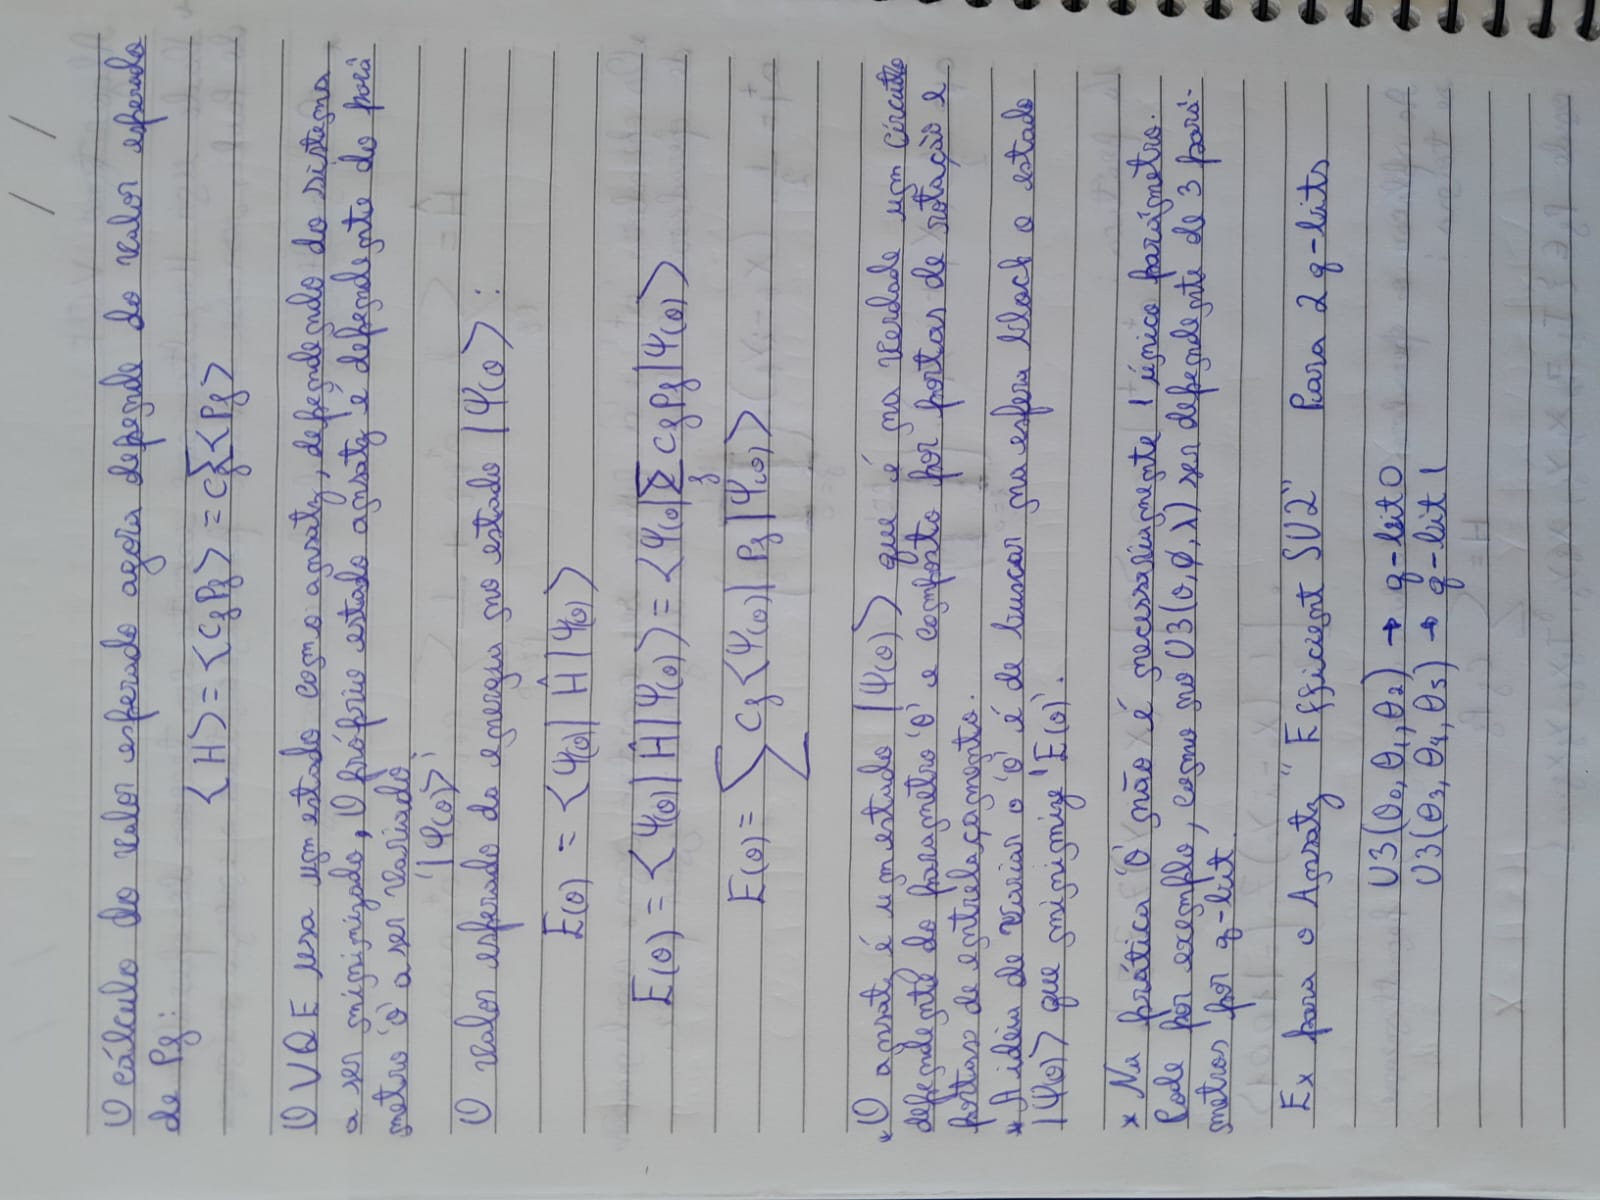 / /
O cálculo do valor esperado agora depende do valor esperado
de Pj:
⟨H⟩ = ⟨CjPj⟩ = Cj∑⟨Pj⟩
O VQE usa um estado como ansatz, dependendo do sistema
a ser minimizado, O próprio estado ansatz é dependente do parâ
metro 'θ' a ser variado.
'|Ψ(θ)⟩'
O valor esperado da energia no estado |Ψ(θ⟩ :
E(θ) = ⟨Ψ(θ)| Ĥ |Ψ(θ)⟩
E(θ) = ⟨Ψ(θ)| Ĥ |Ψ(θ)⟩ = ⟨Ψ(θ)|∑j CjPj|Ψ(θ)⟩
E(θ) = ∑ Cj⟨Ψ(θ)| Pj |Ψ(θ)⟩
* O ansatz é um estado |Ψ(θ)⟩ que é na verdade um circuito
dependente do parametro 'θ' e composto por portas de rotação e
portas de entrelaçamento.
* A ideia de variar o 'θ' é de buscar na esfera block o estado
|Ψ(θ)⟩ que minimize 'E(θ)'.
* Na prática 'θ' não é necessariamente 1 único parâmetro.
Pode por exemplo, como no U3(θ,ϕ,λ) ser dependente de 3 parâ-
metros por q-bit.
Ex para o Ansatz "Efficient SU2" Para 2 q-bits
U3(θ₀, θ₁, θ₂) → q-bit 0
U3(θ₃, θ₄, θ₅) → q-bit 1